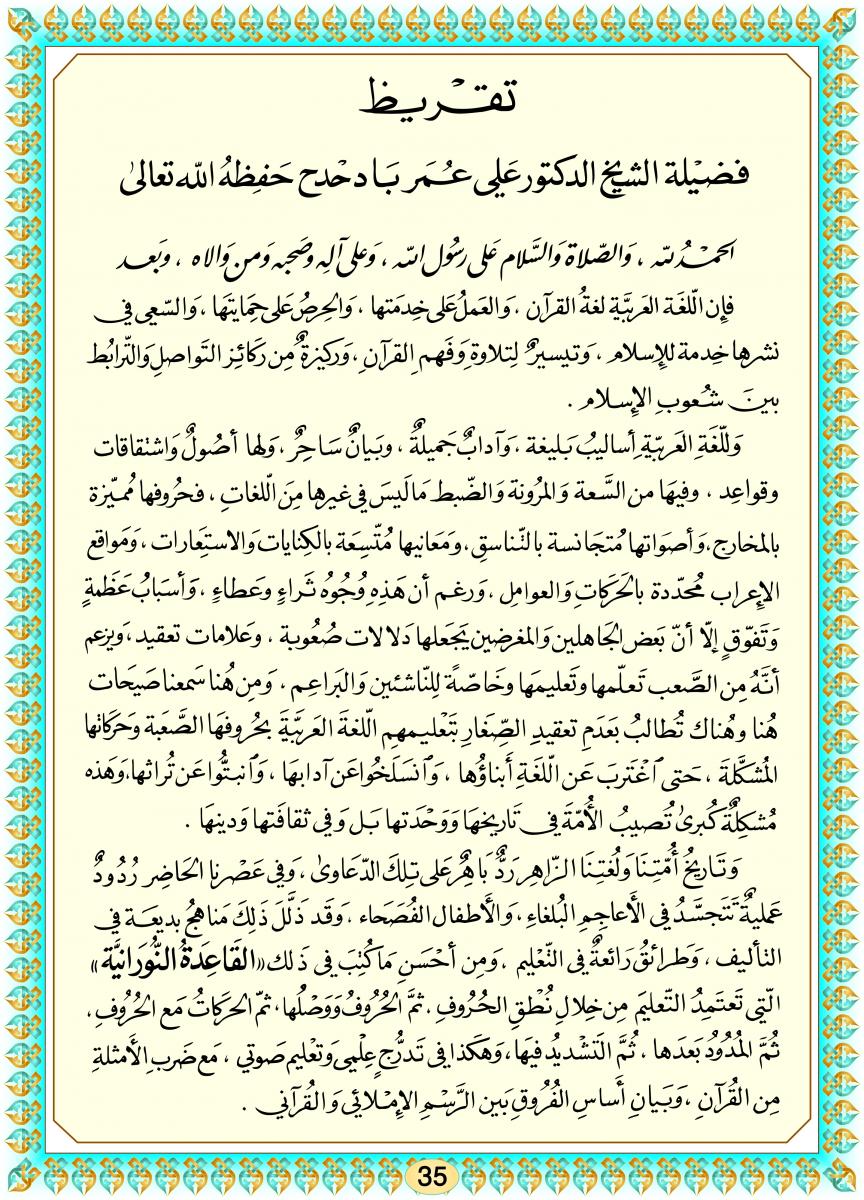 تقريظ
فضيلة الشيخ الدكتور علي عمر بادحدح حفظه الله تعالى
الحمد لله ، والصلاة والسلام على رسول الله ، وعلى آله وصحبه ومن والاه ، وبعد
فإن اللّغة العربيَّة لغةُ القرآن ، والعملُ على خِدمَتها ، والحِرصُ على حِمايتَها ، والسّعي في
نشرها خِدمة للإسلام ، وتيسيرٌ لِتلاوةِ وَفَهم القرآنِ ، وركيزةٌ مِن ركائِز التواصلِ والتّرابُط
بينَ شُعوبِ الإسلام .
وللّغَةِ العَربيّةِ أساليبُ بَليغة ، وآدابٌ جَميلةٌ ، وبيانٌ ساحِرٌ ، ولها أصُولٌ واشتقاقات
وقواعِد ، وفيهَا من السَّعة والمرُونة والضّبط ما ليسَ في غيرها مِنَ اللّغاتِ ، فحرُوفها مُميّزة
بالمخارج، وأصوَاتها مُتجَانسة بالتّناسقِ، ومَعانيها مُتّسِعَة بالكِنايات والاستِعَارات ، وَمواقع
الإعراب مُحدّدة بالحَركَاتِ والعوامِل ، ورغم أن هَذِهِ وُجُوهُ ثَراءٍ وعَطاءٍ ، وأسبابُ عَظَمةٍ
وَتَفوّقٍ إلّا أنّ بَعض الجَاهلين والمغرضِين يَجعَلها دَلالات صُعُوبة ، وعَلامات تعقيد، ويزعم
أنَّهُ مِن الصَّعب تَعلّمها وتَعليمهَا وخَاصّةً لِلنّاشئين والبَراعِم ، وَمِن هُنا سَمعنا صَيحَات
هُنا وهُناك تُطالبُ بعَدَمِ تعقيدِ الصِّغارِ بتَعليمهِم اللّغةَ العَربيَّةَ بحُروفِها الصَّعبَة وحَركَاتها
المُشكّلَة ، حَتى اغْتَربَ عَن اللّغَةِ أبناؤُها ، وَانسَلَخُوا عَن آدابهَا ، وَانبتُّوا عَن تُراثها، وهَذه
مُشكِلةٌ كُبرىٰ تُصيبُ الأُمّةَ في تَاريخهَا وَوَحْدَتها بَل وَفي ثقافَتها ودينهَا .
وَتَاريخُ أُمّتِنَا وَلُغتِنَا الزّاهِر رَدٌّ باهِرٌ على تِلكَ الدّعَاوىٰ ، وَفي عَصْرنا الحَاضِر رُدُودٌ
عَمليةٌ تتجَسَّدُ في الأعاجِمِ البُلغاءِ ، والأطفال الفُصَحاء ، وَقَد ذَلّلَ ذلِكَ مَناهجُ بديعَة في
التأليف ، وَطرائقُ رَائعةٌ في التّعْليم ، ومِن أحْسَنِ مَا كُتِبَ في ذلك «القَاعِدَةُ النُّورَانيَّة»
الّتي تَعتمِدُ التّعليمَ مِن خِلالِ نُطقِ الحُروفِ ، ثمَّ الحُروفُ وَوَصْلُها، ثمّ الحركَاتُ مَع الحُروفِ ،
ثُمَّ المُدُودُ بَعدَها ، ثُمَّ التَشديدُ فيهَا، وَهكَذا في تدَرُّجٍ عِلْمي وَتعليم صَوتي ، مَع ضَربِ الأمثلةِ
مِن القُرآنِ ، وَبَيانِ أساسِ الفُروقِ بَين الرَّسْمِ الإمْلائي وَالقُرآني .
35